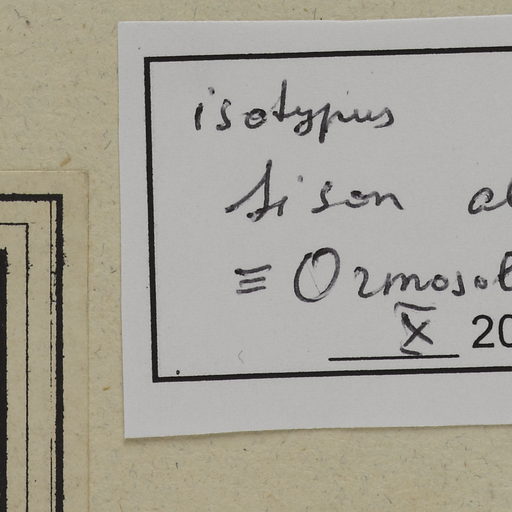 isotypus
Sison al
≡ Ormosol
X 20